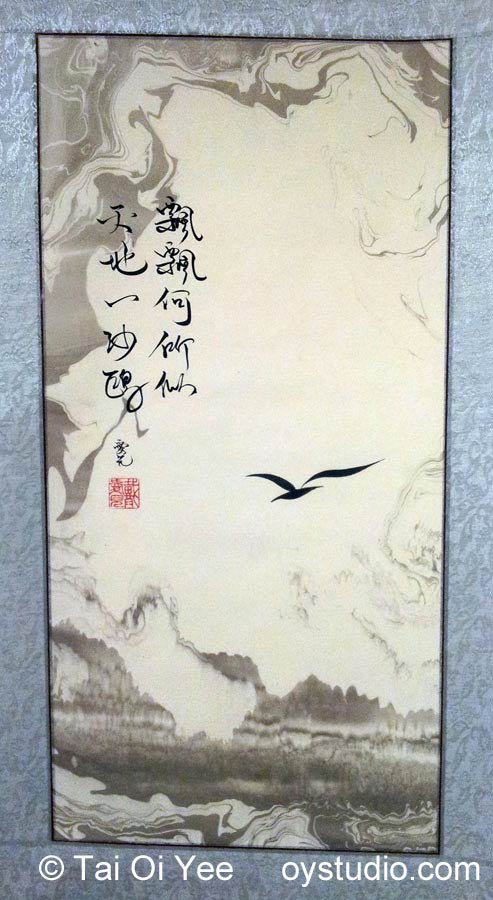 飄飄何所似
天地一沙鷗
© Tai Oi Yee oystudio.com